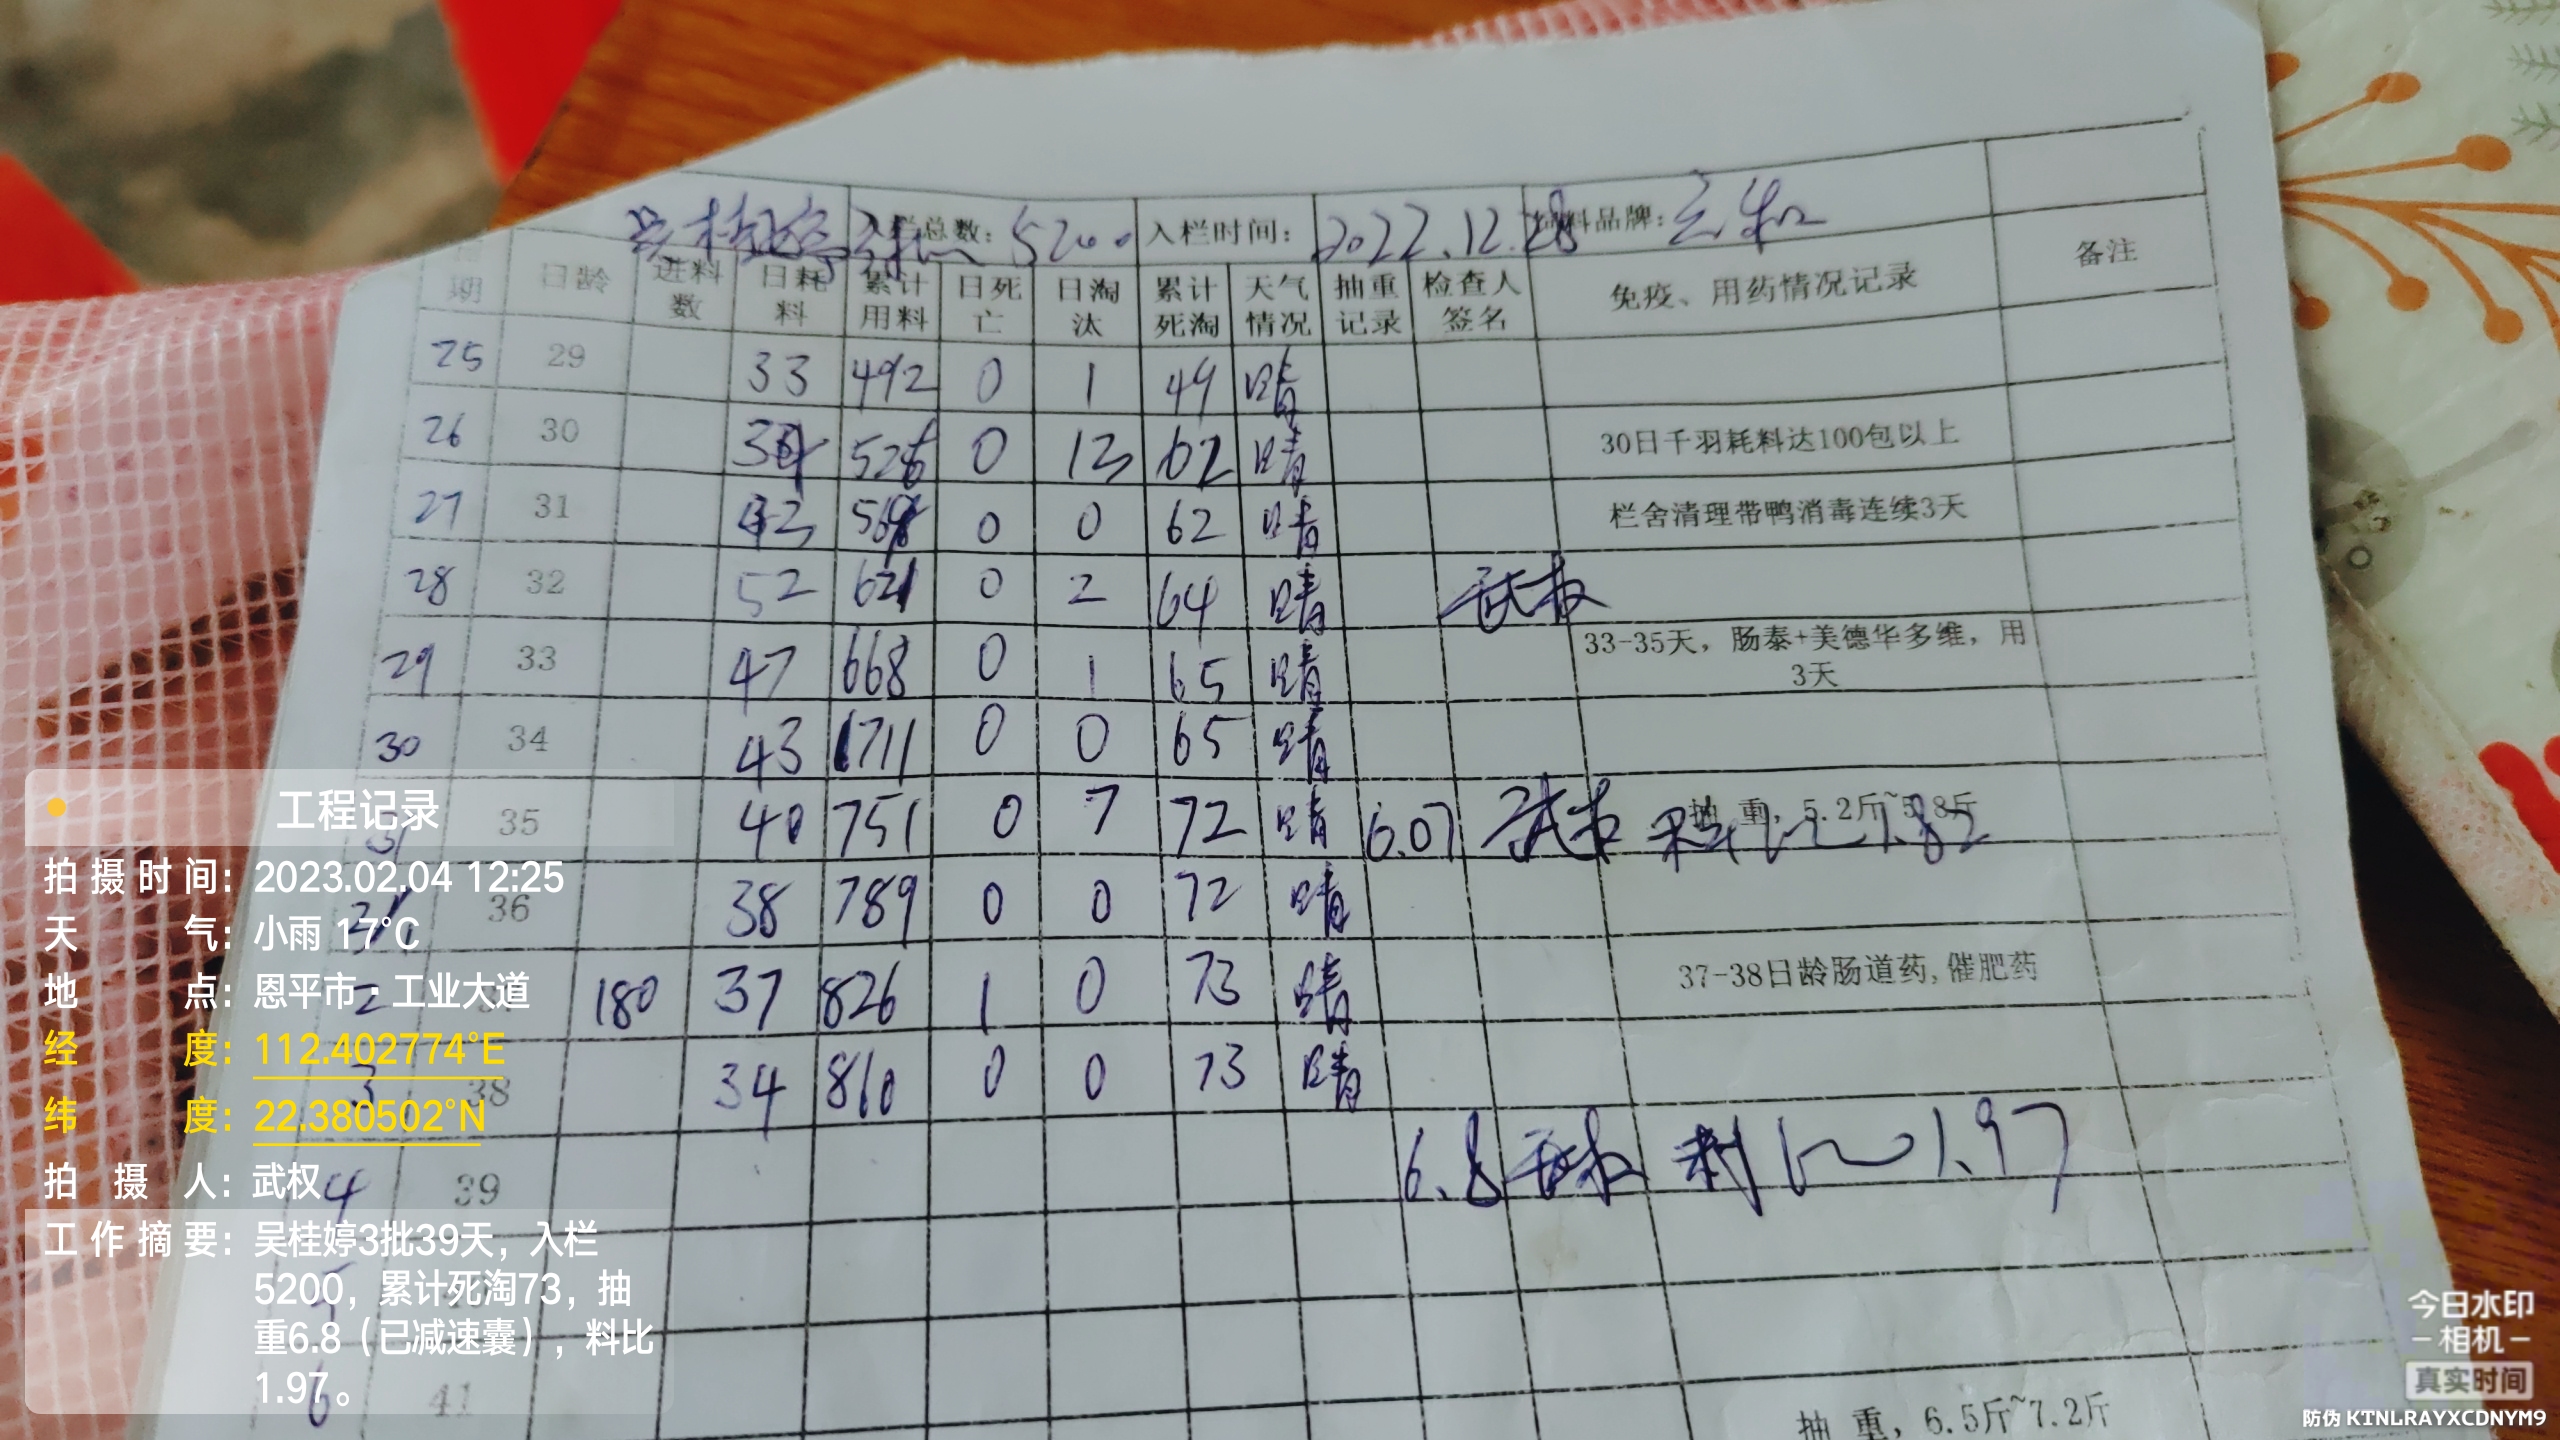 吴桂婷3批 入栏总数: 5200 入栏时间: 2022.12.28 饲料品牌:
期 日龄 进料数 日耗料 累计用料 日死亡 日淘汰 累计死淘 天气情况 抽重记录 检查人签名 免疫、用药情况记录 备注
25 29 33 492 0 1 49 晴
26 30 34 526 0 13 62 晴 30日千羽耗料达100包以上
27 31 0 0 62 晴 栏舍清理带鸭消毒连续3天
28 32 52 621 0 2 64 晴 武权
29 33 47 668 0 1 65 晴 33-35天，肠泰+美德华多维，用3天
30 34 43 711 0 0 65 晴
31 35 40 751 0 7 72 晴 6.07 武权 抽 重，5.2斤~5.8斤 料比 1.82
36 38 789 0 0 72 晴
2 180 37 826 1 0 73 晴 37-38日龄肠道药,催肥药
3 38 34 860 0 0 73 晴
4 39 6.8 武权 料比 1.97
5
6 41 抽 重，6.5斤~7.2斤
工程记录
拍摄时间: 2023.02.04 12:25
天气: 小雨 17℃
地点: 恩平市·工业大道
经度: 112.402774°E
纬度: 22.380502°N
拍摄人: 武权
工作摘要: 吴桂婷3批39天，入栏
5200，累计死淘73，抽
重6.8（已减速囊），料比
1.97。
今日水印
相机
真实时间
防伪 KTNLRAYXCDNYM9